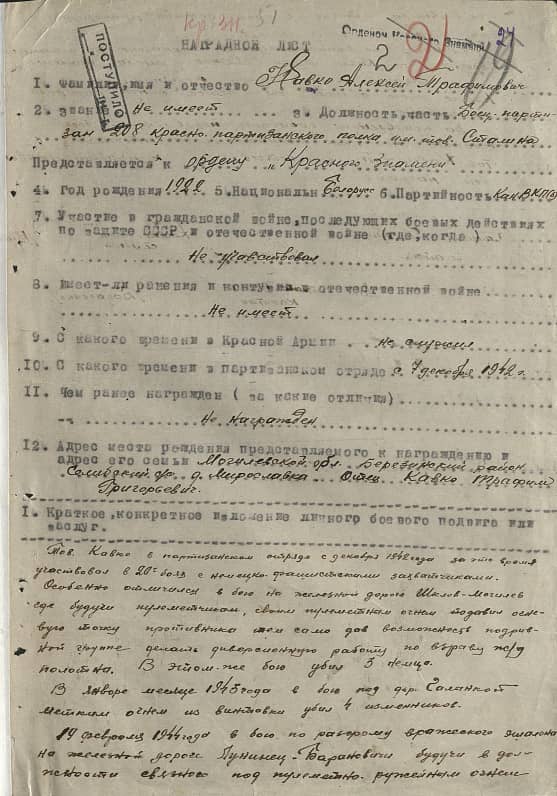 Кр. Зн. 51
Орденом Красного Знамени
2 21
ПОСТУПИЛО
НАГРАДНОЙ ЛИСТ
1. Фамилия, имя и отчество Кавко Алексей Трафимович
2. звание Не имеет 3. Должность, часть Боец парти-
зан 208 Красно. партизанского полка им. тов. Сталина
Представляется к ордену „Красного знамени"
4. Год рождения 1922 5. Национальн. Белорус 6. Партийность Кан.ВКП(б)
7. Участие в гражданской войне, последующих боевых действиях
по защите СССР и отечественной войне (где, когда)
Не участвовал
8. Имеет-ли ранения и контузии в отечественной войне
Не имеет
9. С какого времени в Красной Армии .. не служил
10. С какого времени в партизанском отряде с 7 декабря 1942 г.
11. Чем ранее награжден ( за какие отличия)
Не награжден
12. Адрес места рождения представляемого к награждению и
адрес его семьи Могилевской обл. Березинский район
д. Мирославка Отец Кавко Трафим
Григорьевич.
1. Краткое, конкретное изложение личного боевого подвига или
заслуг.
Тов. Кавко в партизанском отряде с декабря 1942 года за это время
участвовал в 20-и боях с немецко-фашистскими захватчиками.
Особенно отличился в бою на железной дороге Шклов-Могилев
где будучи пулеметчиком, своим пулеметным огнем подавил огне-
вую точку противника тем само дав возможность подрыв-
ной группе делать диверсионную работу по взрыву ж/д
полотна. В этом-же бою убил 3 немца.
В январе месяце 1943 года в бою под дер.
метким огнем из винтовки убил 4 изменников.
19 февраля 1944 года в бою по разгрому вражеского эшелона
на железной дороге Лунинец-Барановичи будучи в дол-
жности связного под пулеметно-ружейным огнем